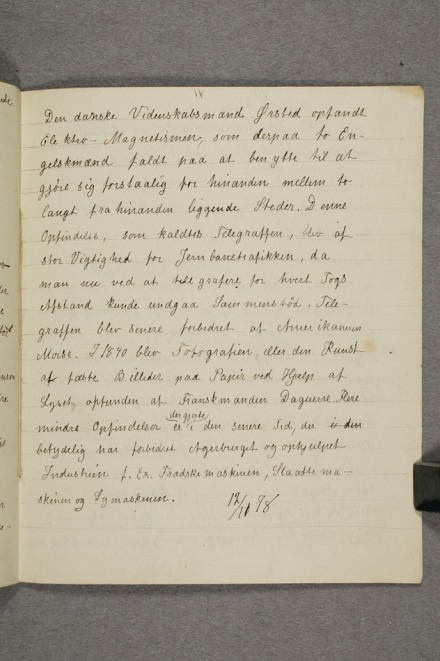 IV
Den danske Videnskabsmand Ørsted opfandt
Elektro-Magnetismen, som derpaa to En-
gelskmænd faldt paa at benytte til at
gjøre sig forstaalig for hinanden mellem to
langt fra hinanden liggende Steder. Denne
Opfindelse, som kaldtes Telegraffen, blev af
stor Vigtighed for Jernbanetrafikken, da
man nu ved at telegrafere for hvert Togs
Afstand kunde undgaa Sammenstød. Tele-
graffen blev senere forbedret af Amerikaneren
Morse. I 1840 blev Fotografien, eller den Kunst
at fæste Billeder paa Papir ved Hjælp af
Lyset, opfunden af Franskmanden Daguerre. Flere
mindre Opfindelser er i den senere Tid, der
betydelig har forbedret Agerbruget og ophjulpet
Industrien f. Ex. Tradskemaskinen, Slaattema-
skinen og Symaskinen. 12/11 78